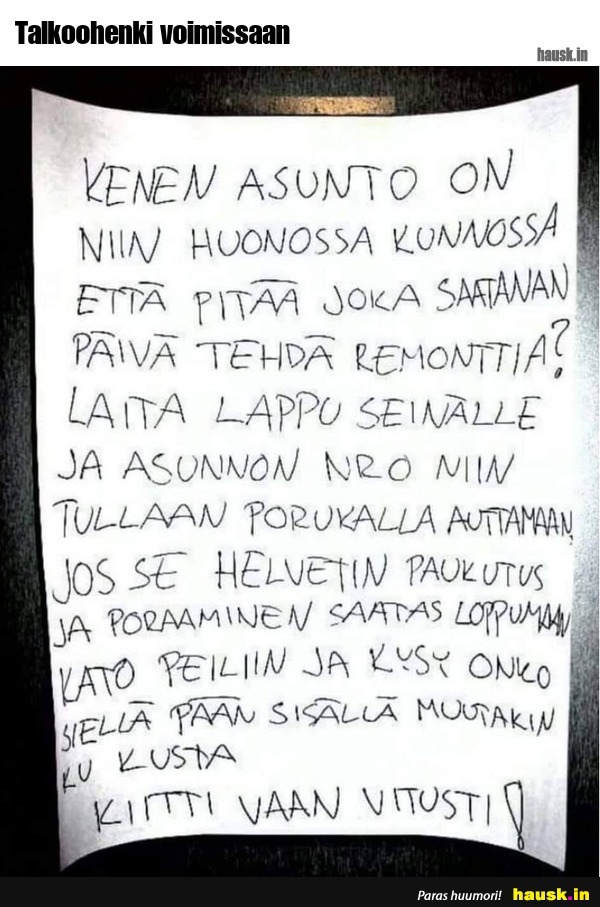 Talkoohenki voimissaan
hausk.in
KENEN ASUNTO ON
NIIN HUONOSSA KUNNOSSA
ETTÄ PITÄÄ JOKA SAATANAN
PÄIVÄ TEHDÄ REMONTTIA?
LAITA LAPPU SEINÄLLE
JA ASUNNON NRO NIIN
TULLAAN PORUKALLA AUTTAMAAN,
JOS SE HELVETIN PAUKUTUS
JA PORAAMINEN SAATAS LOPPUMAAN
KATO PEILIIN JA KYSY ONKO
SIELLÄ PÄÄN SISÄLLÄ MUUTAKIN
KU KUSTA
KIITTI VAAN VITUSTI!
Paras huumori! hausk.in